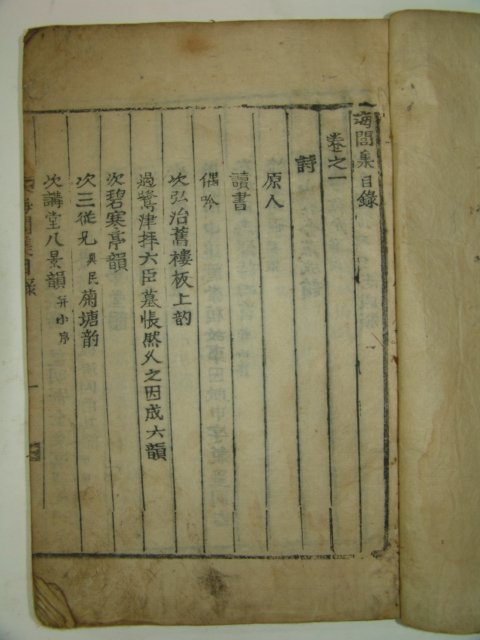 海閭集目錄
卷之一
詩
原人
讀書
偶吟
次弘治舊樓板上韵
過鷺津拜六臣墓悵然久之因成六韻
次碧寒亭韻
次三從兄興民菊塘韵
次講堂八景韻并小序
海閭集目錄